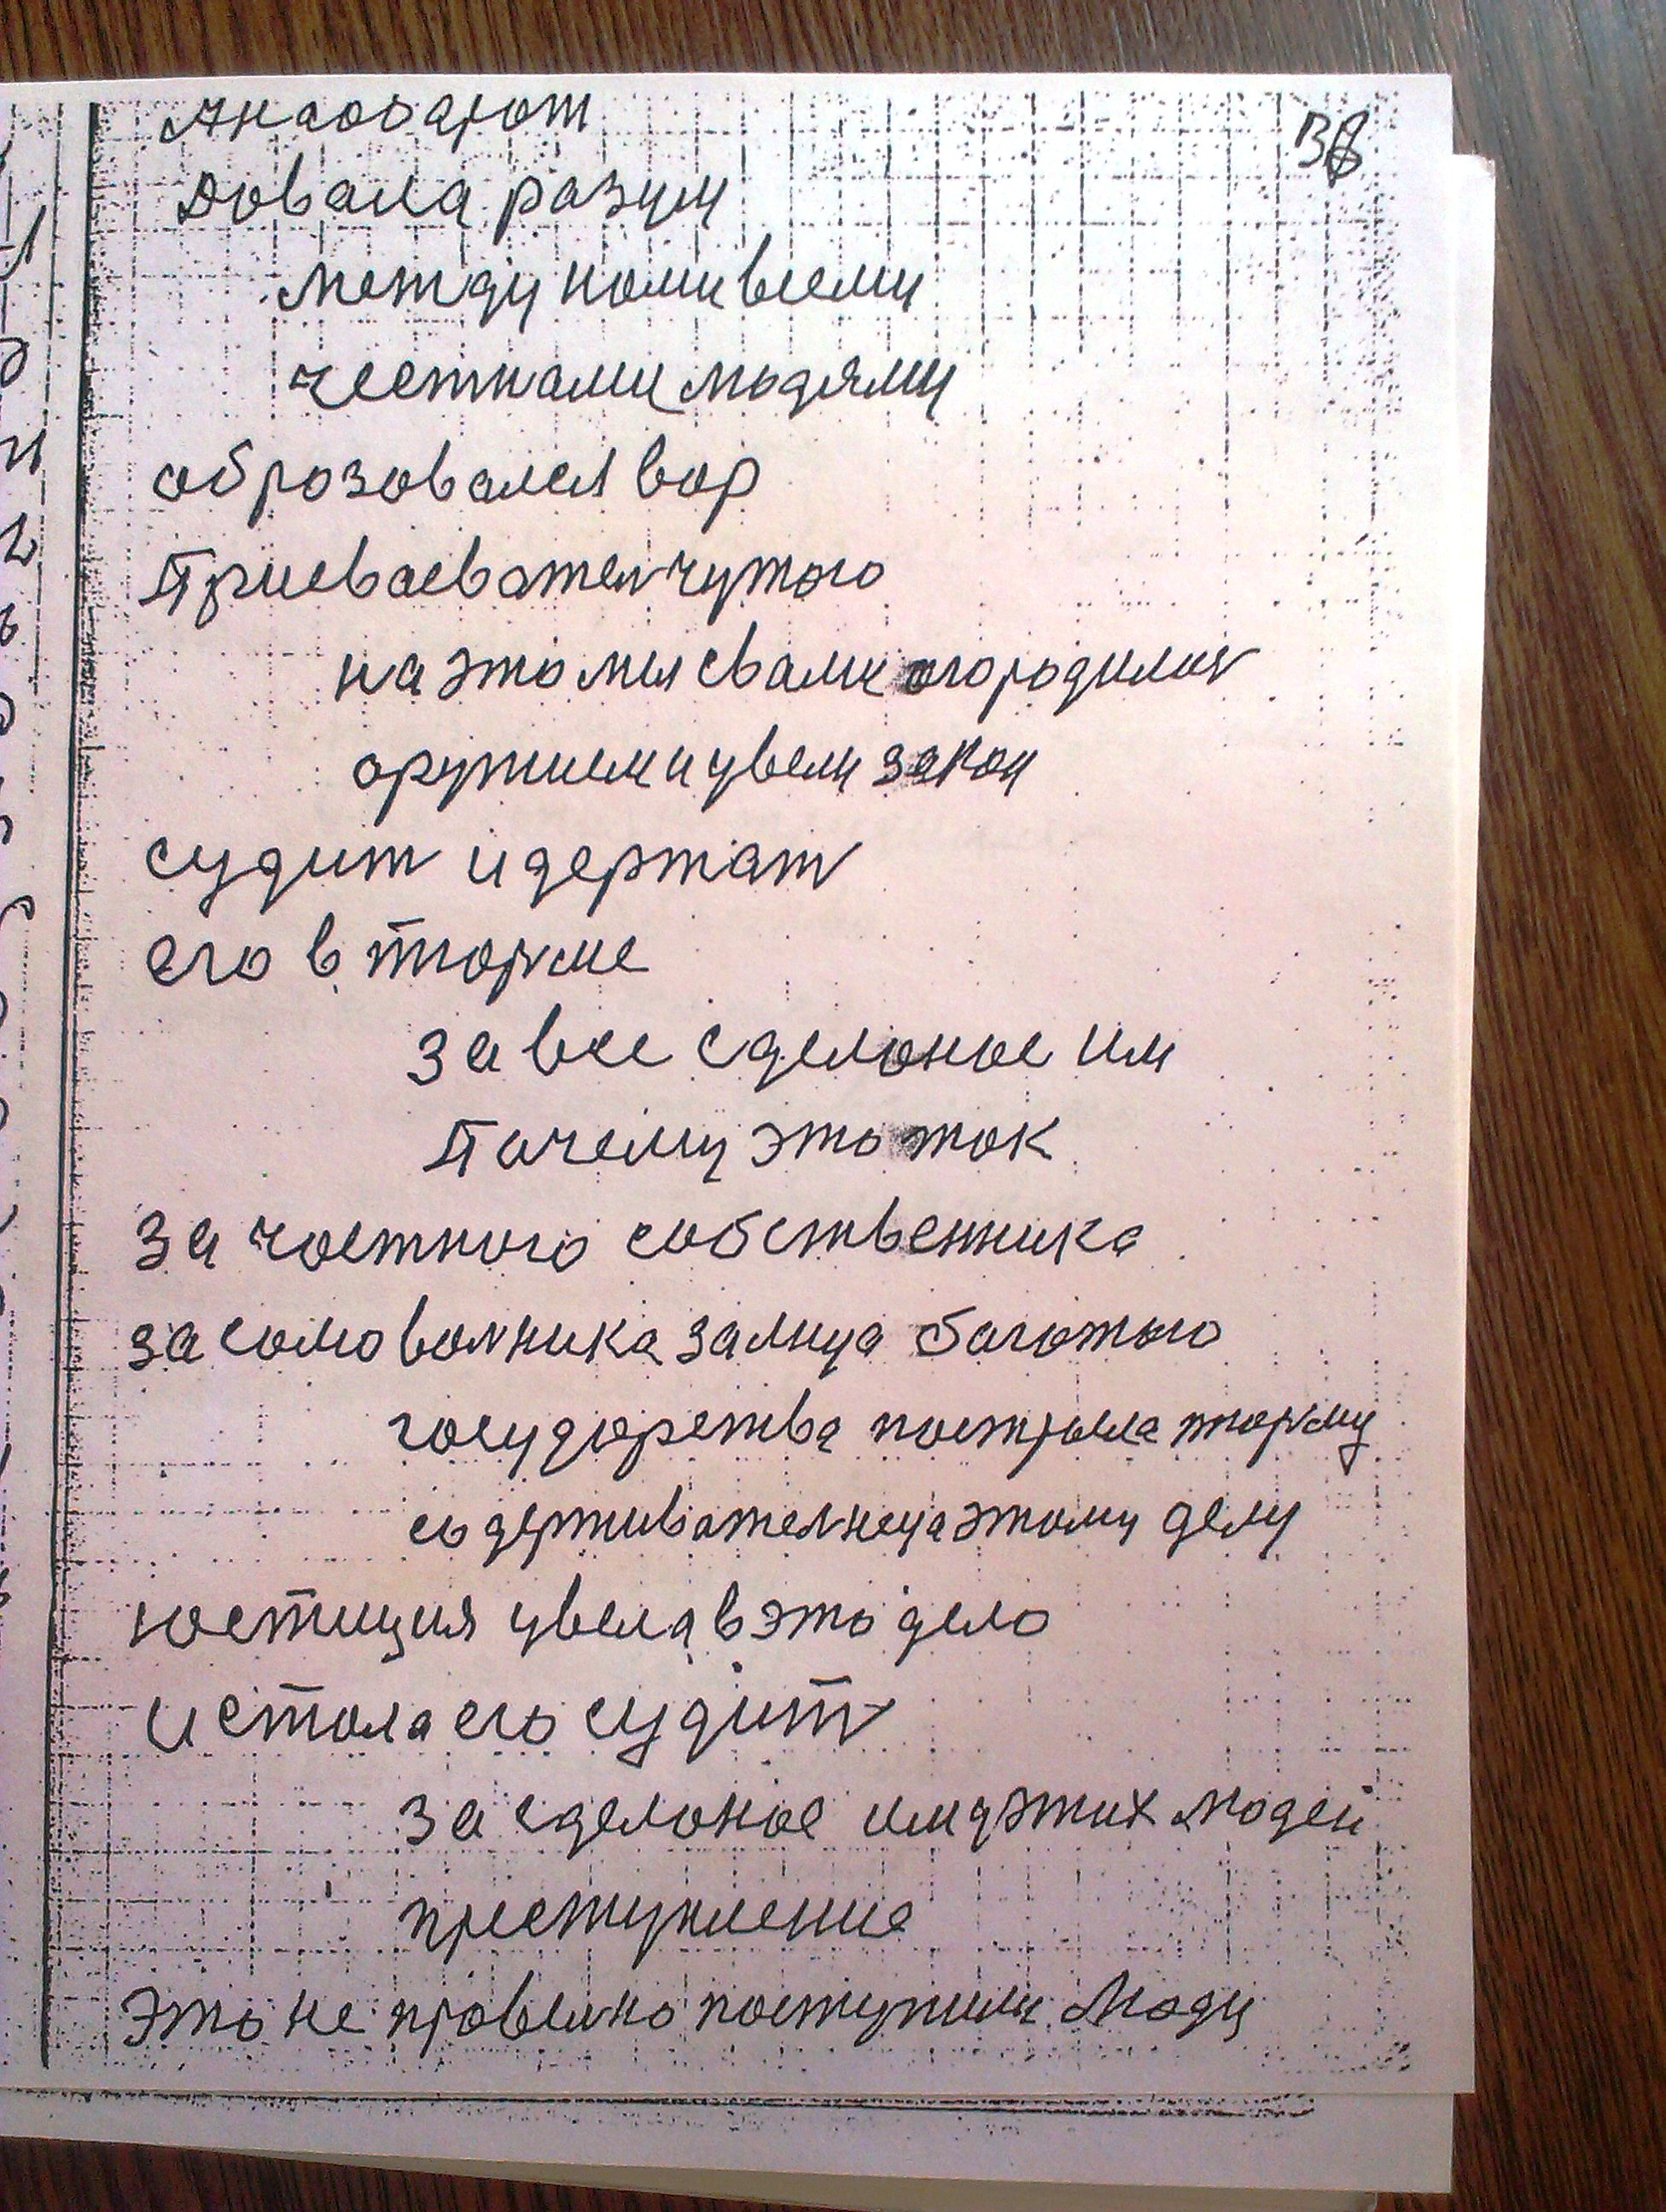 38
Анаоборот
Довала разум
между номи всеми
честнами людями
оброзовался вор
Присваеватель чужого
на это мы свами огородилис
оружием и увели закон
судит и держат
его в тюрме
за все сделоное им
Почему это ток
За частного собственика
за сомоволника за лица богатого
государства построела тюрму
содерживателнеца этому делу
юстиция увела в это дело
и стола его судит
за сделоное им у этих людей
преступление
Это не провелно поступили люди